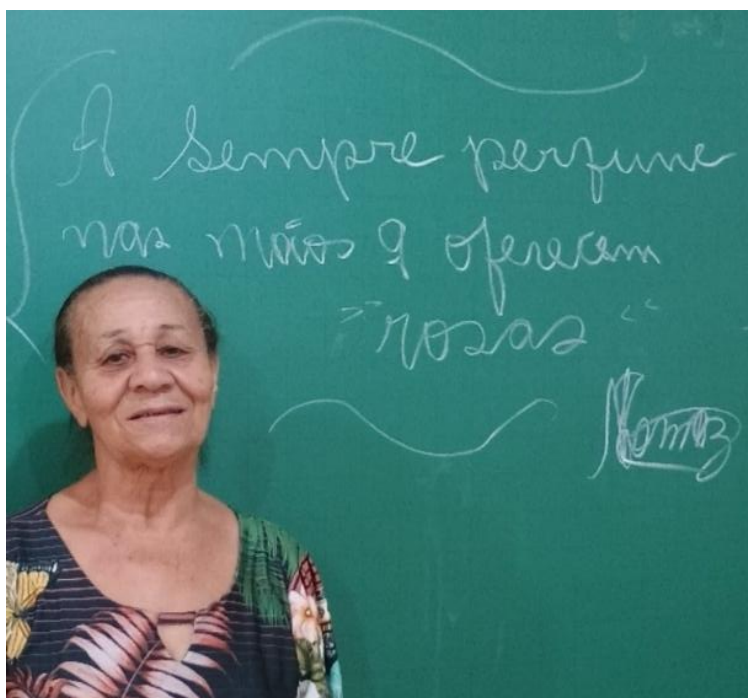 A sempre perfume
nas mãos q oferecem
"rosas"